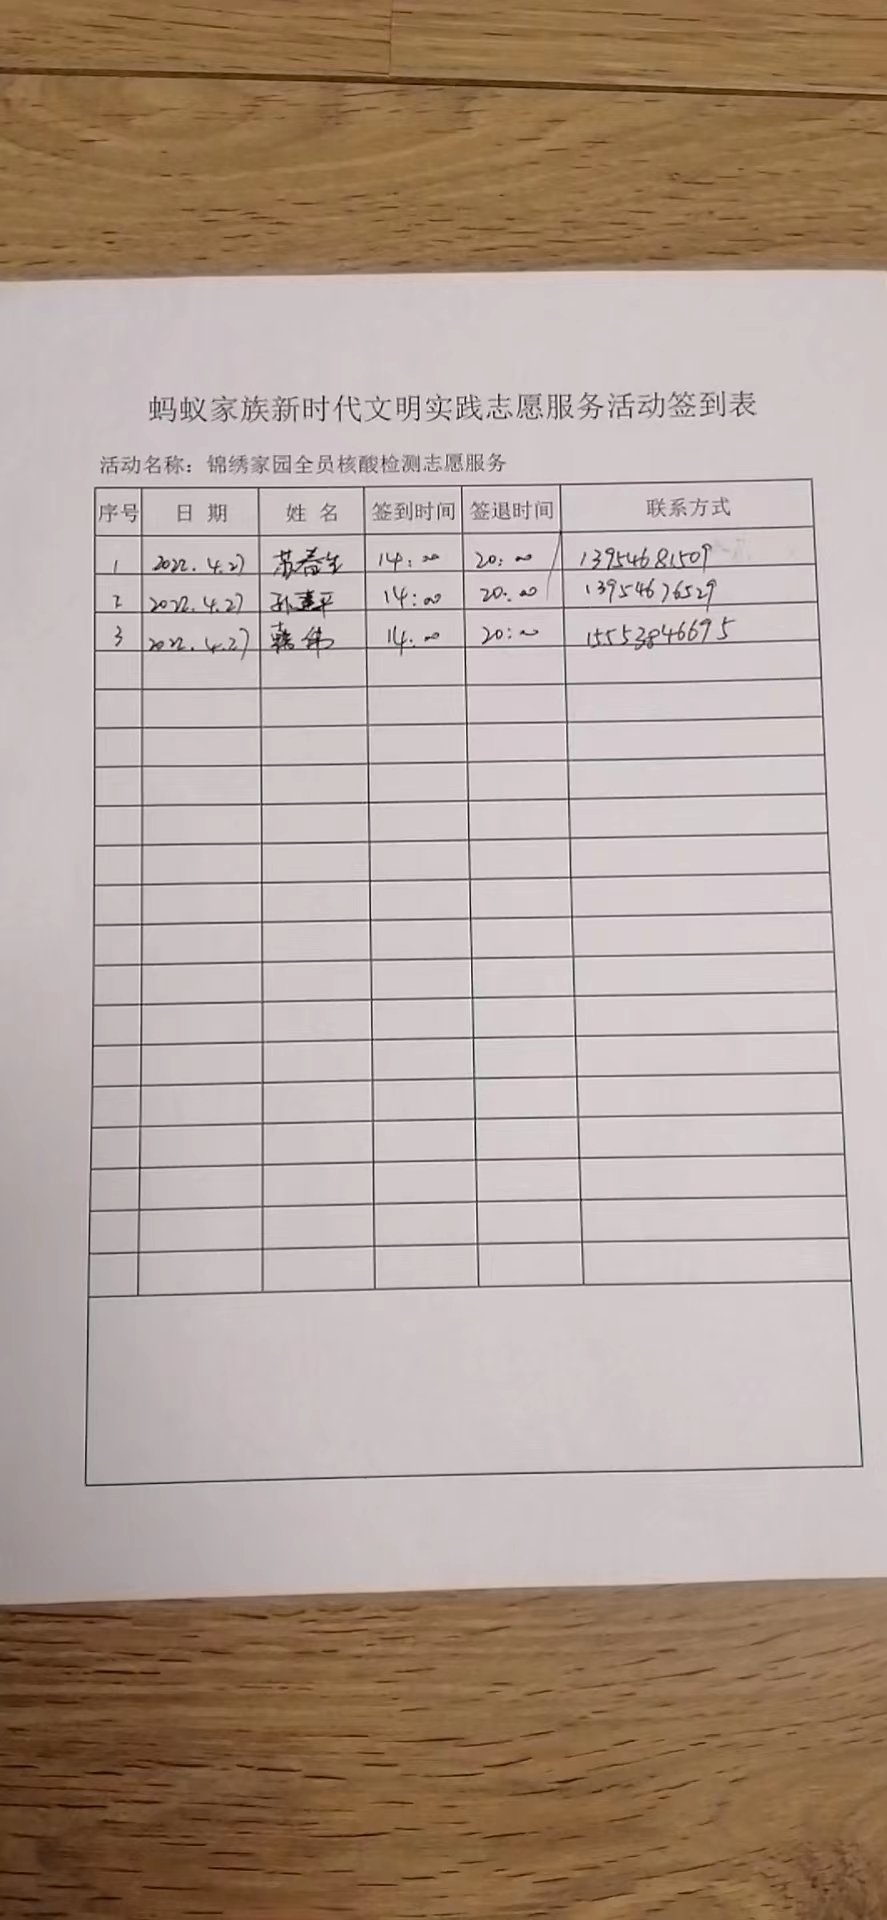 蚂蚁家族新时代文明实践志愿服务活动签到表
活动名称：锦绣家园全员核酸检测志愿服务
序号 日 期 姓 名 签到时间 签退时间 联系方式
1 2022.4.27 苏春生 14:00 20:00 13954681509
2 2022.4.27 孙建平 14:00 20:00 13954676529
3 2022.4.27 韩伟 14:00 20:00 15553846695